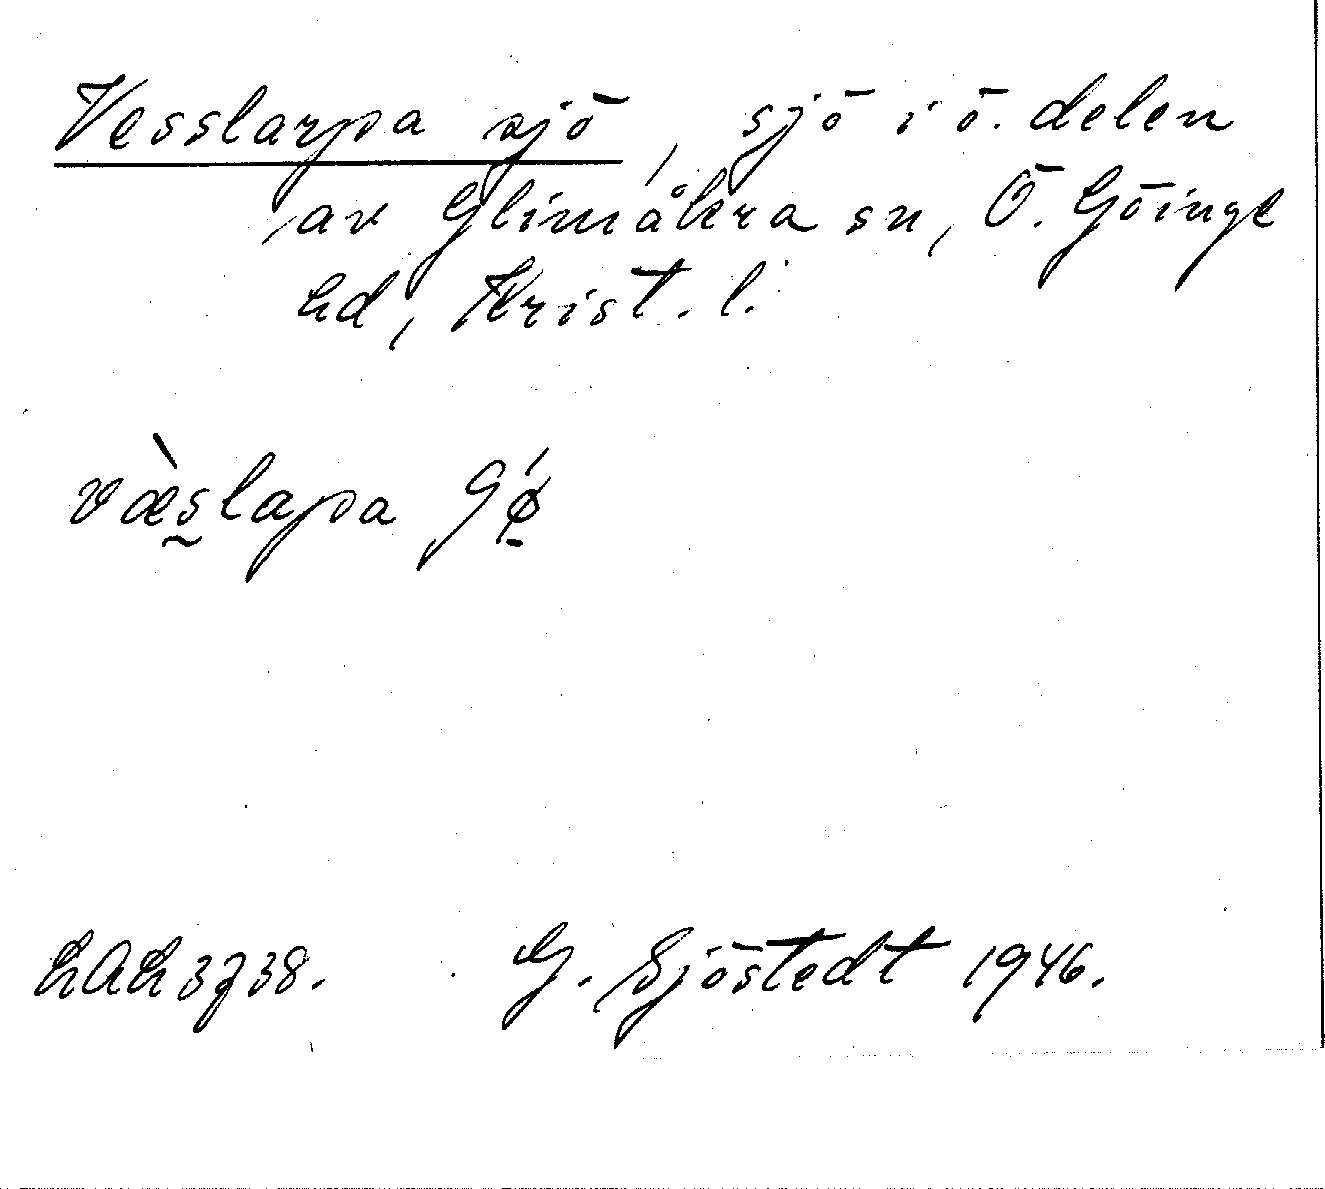 Vesslarpa sjö, sjö i ö. delen
av Glimåkra sn, Ö. Göinge
hd, Krist. l.
væ̀slapa
G. Sjöstedt 1946.